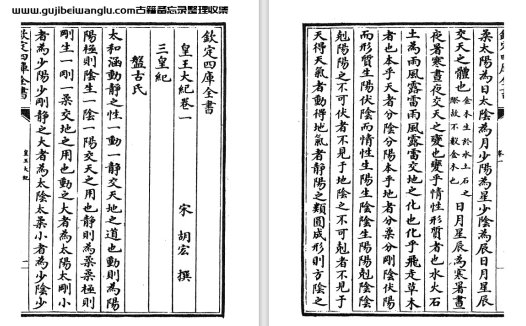 www.gujibeiwanglu.com古籍备忘录整理收集
欽定四庫全書
皇王大紀卷一
宋 胡宏 撰
三皇紀
盤古氏
太和涵動静之性一動一静交天地之道也動則為陽
陽極則陰生一陰一陽交天之用也静則為柔柔極則
剛生一剛一柔交地之用也動之大者為太陽太剛小
者為少陽少剛静之大者為太陰太柔小者為少陰少
欽定四庫全書 皇王大紀 一
欽定四庫全書 卷一
柔太陽為日太陰為月少陽為星少陰為辰日月星辰
交天之體也 金木生於水土石之際故不數金木也 日月星辰為寒暑晝
夜暑寒晝夜交天之變也變乎情性形質者也水火石
土為雨風露雷雨風露雷交地之化也化乎飛走草木
者也本乎天者分陰分陽本乎地者分柔分剛陰伏陽
而形質生陽伏陰而情性生陽生陰陰生陽陽剋陰陰
剋陽陽之不可伏者不見于地陰之不可剋者不見于
天得天氣者動得地氣者静陽之類圓成形則方陰之